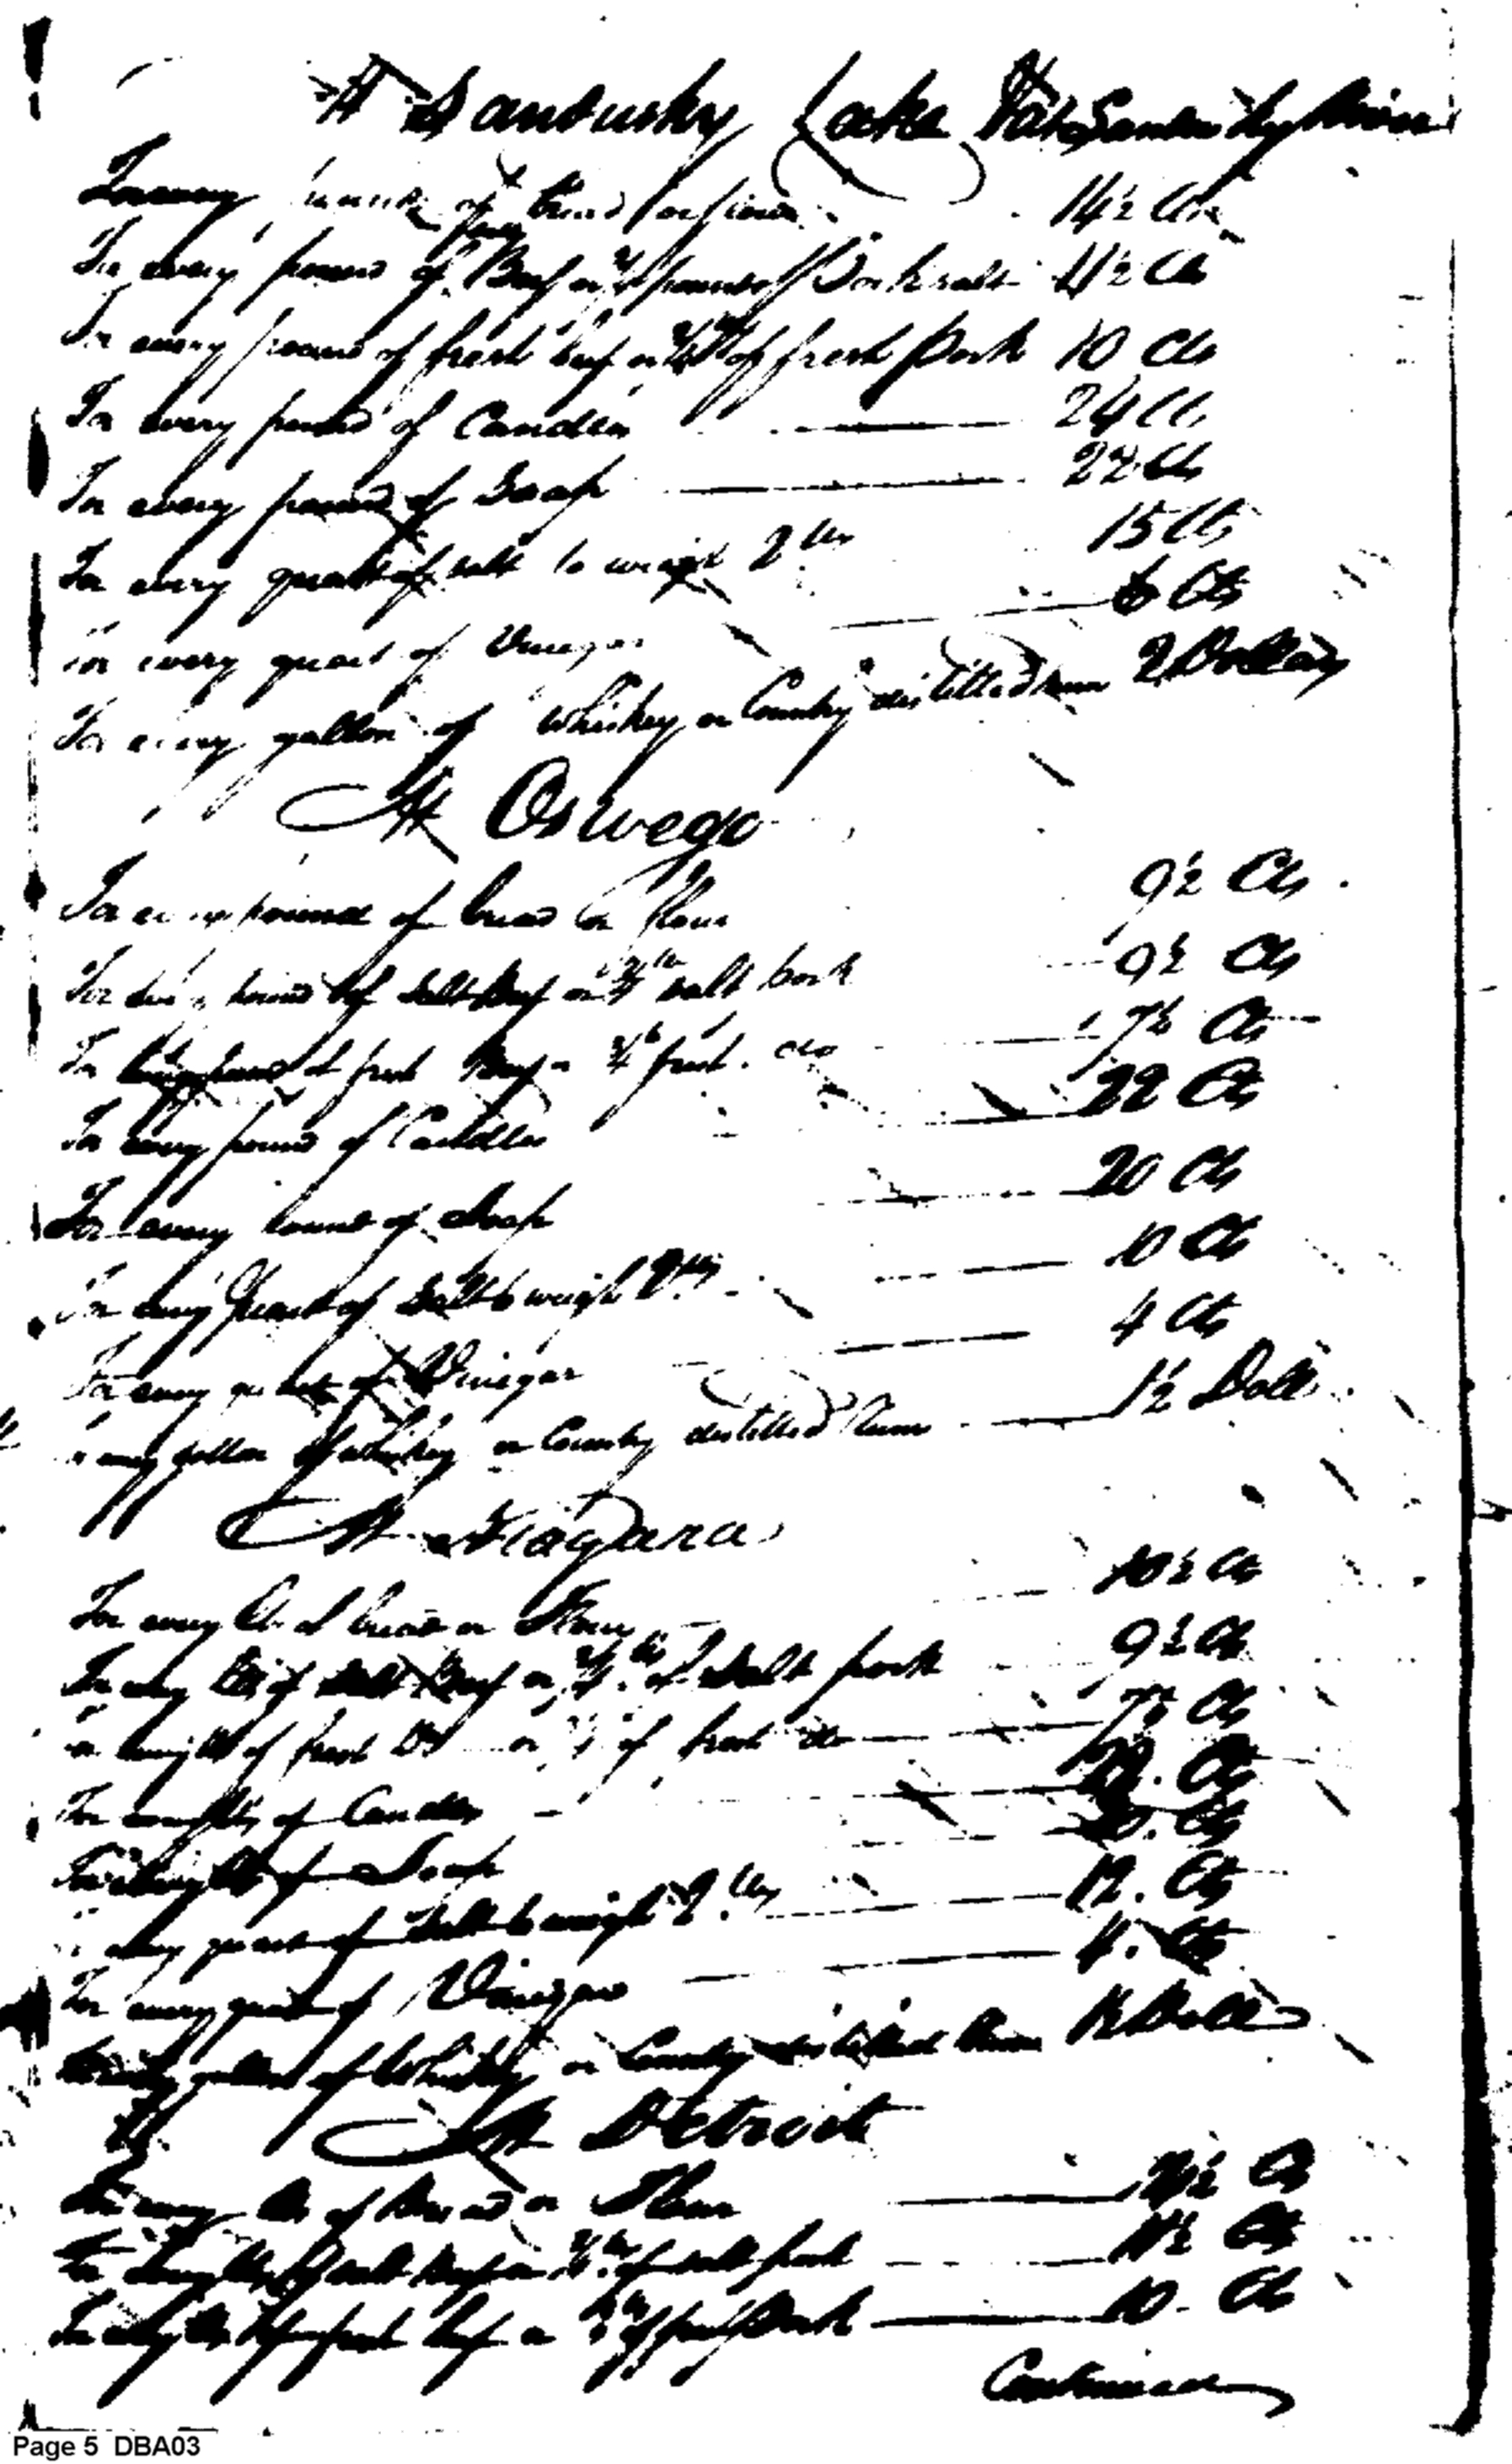 At Sandusky Lake & Sandusky River
For every of bread or flour 14½ Cts
For every pound of Beef or ¾ pound of Pork salt 11½ Cts
For every pound of fresh beef or ¾ lb of fresh Pork 10 Cts
For every pound of Candles 24 Cts
For every pound of Soap 22 Cts
For every quart of salt to weigh 2 lbs 15 Cts
For every quart of Vinegar 6 Cts
For every gallon of Whiskey or Country distilled rum 2 Dollars
At Oswego
For every pound of bread or flour 9½ Cts
For every pound of Salt Beef or ¾ lb salt pork 9½ Cts
For every pound of fresh Beef or ¾ lb fresh do 7½ Cts
For every pound of Candles 22 Cts
For every pound of Soap 20 Cts
For every Quart of Salt to weigh 2 lbs 10 Cts
For every quart of Vinegar 4 Cts
For every gallon of whiskey or Country distilled Rum 1½ Doll
At Niagara
For every lb of bread or Flour 10½ Cts
For every lb of Salt Beef or ¾ lb of Salt pork 9½ Cts
For every lb of fresh do or ¾ of fresh do Cts
For every lb of Candles Cts
For every lb of Soap 20. Cts
For every quart of Salt to weigh 2. lbs 12. Cts
For every quart of Vinegar 4. Cts
For every gallon of Whiskey or Country distilled Rum Doll
At Detroit
For every lb of Bread or Flour Cts
For every lb of salt beef or ¾ lb of salt pork 11½ Cts
For every lb of fresh beef or ¾ lb of fresh Pork 10 Cts
Continued
Page 5 DBA03